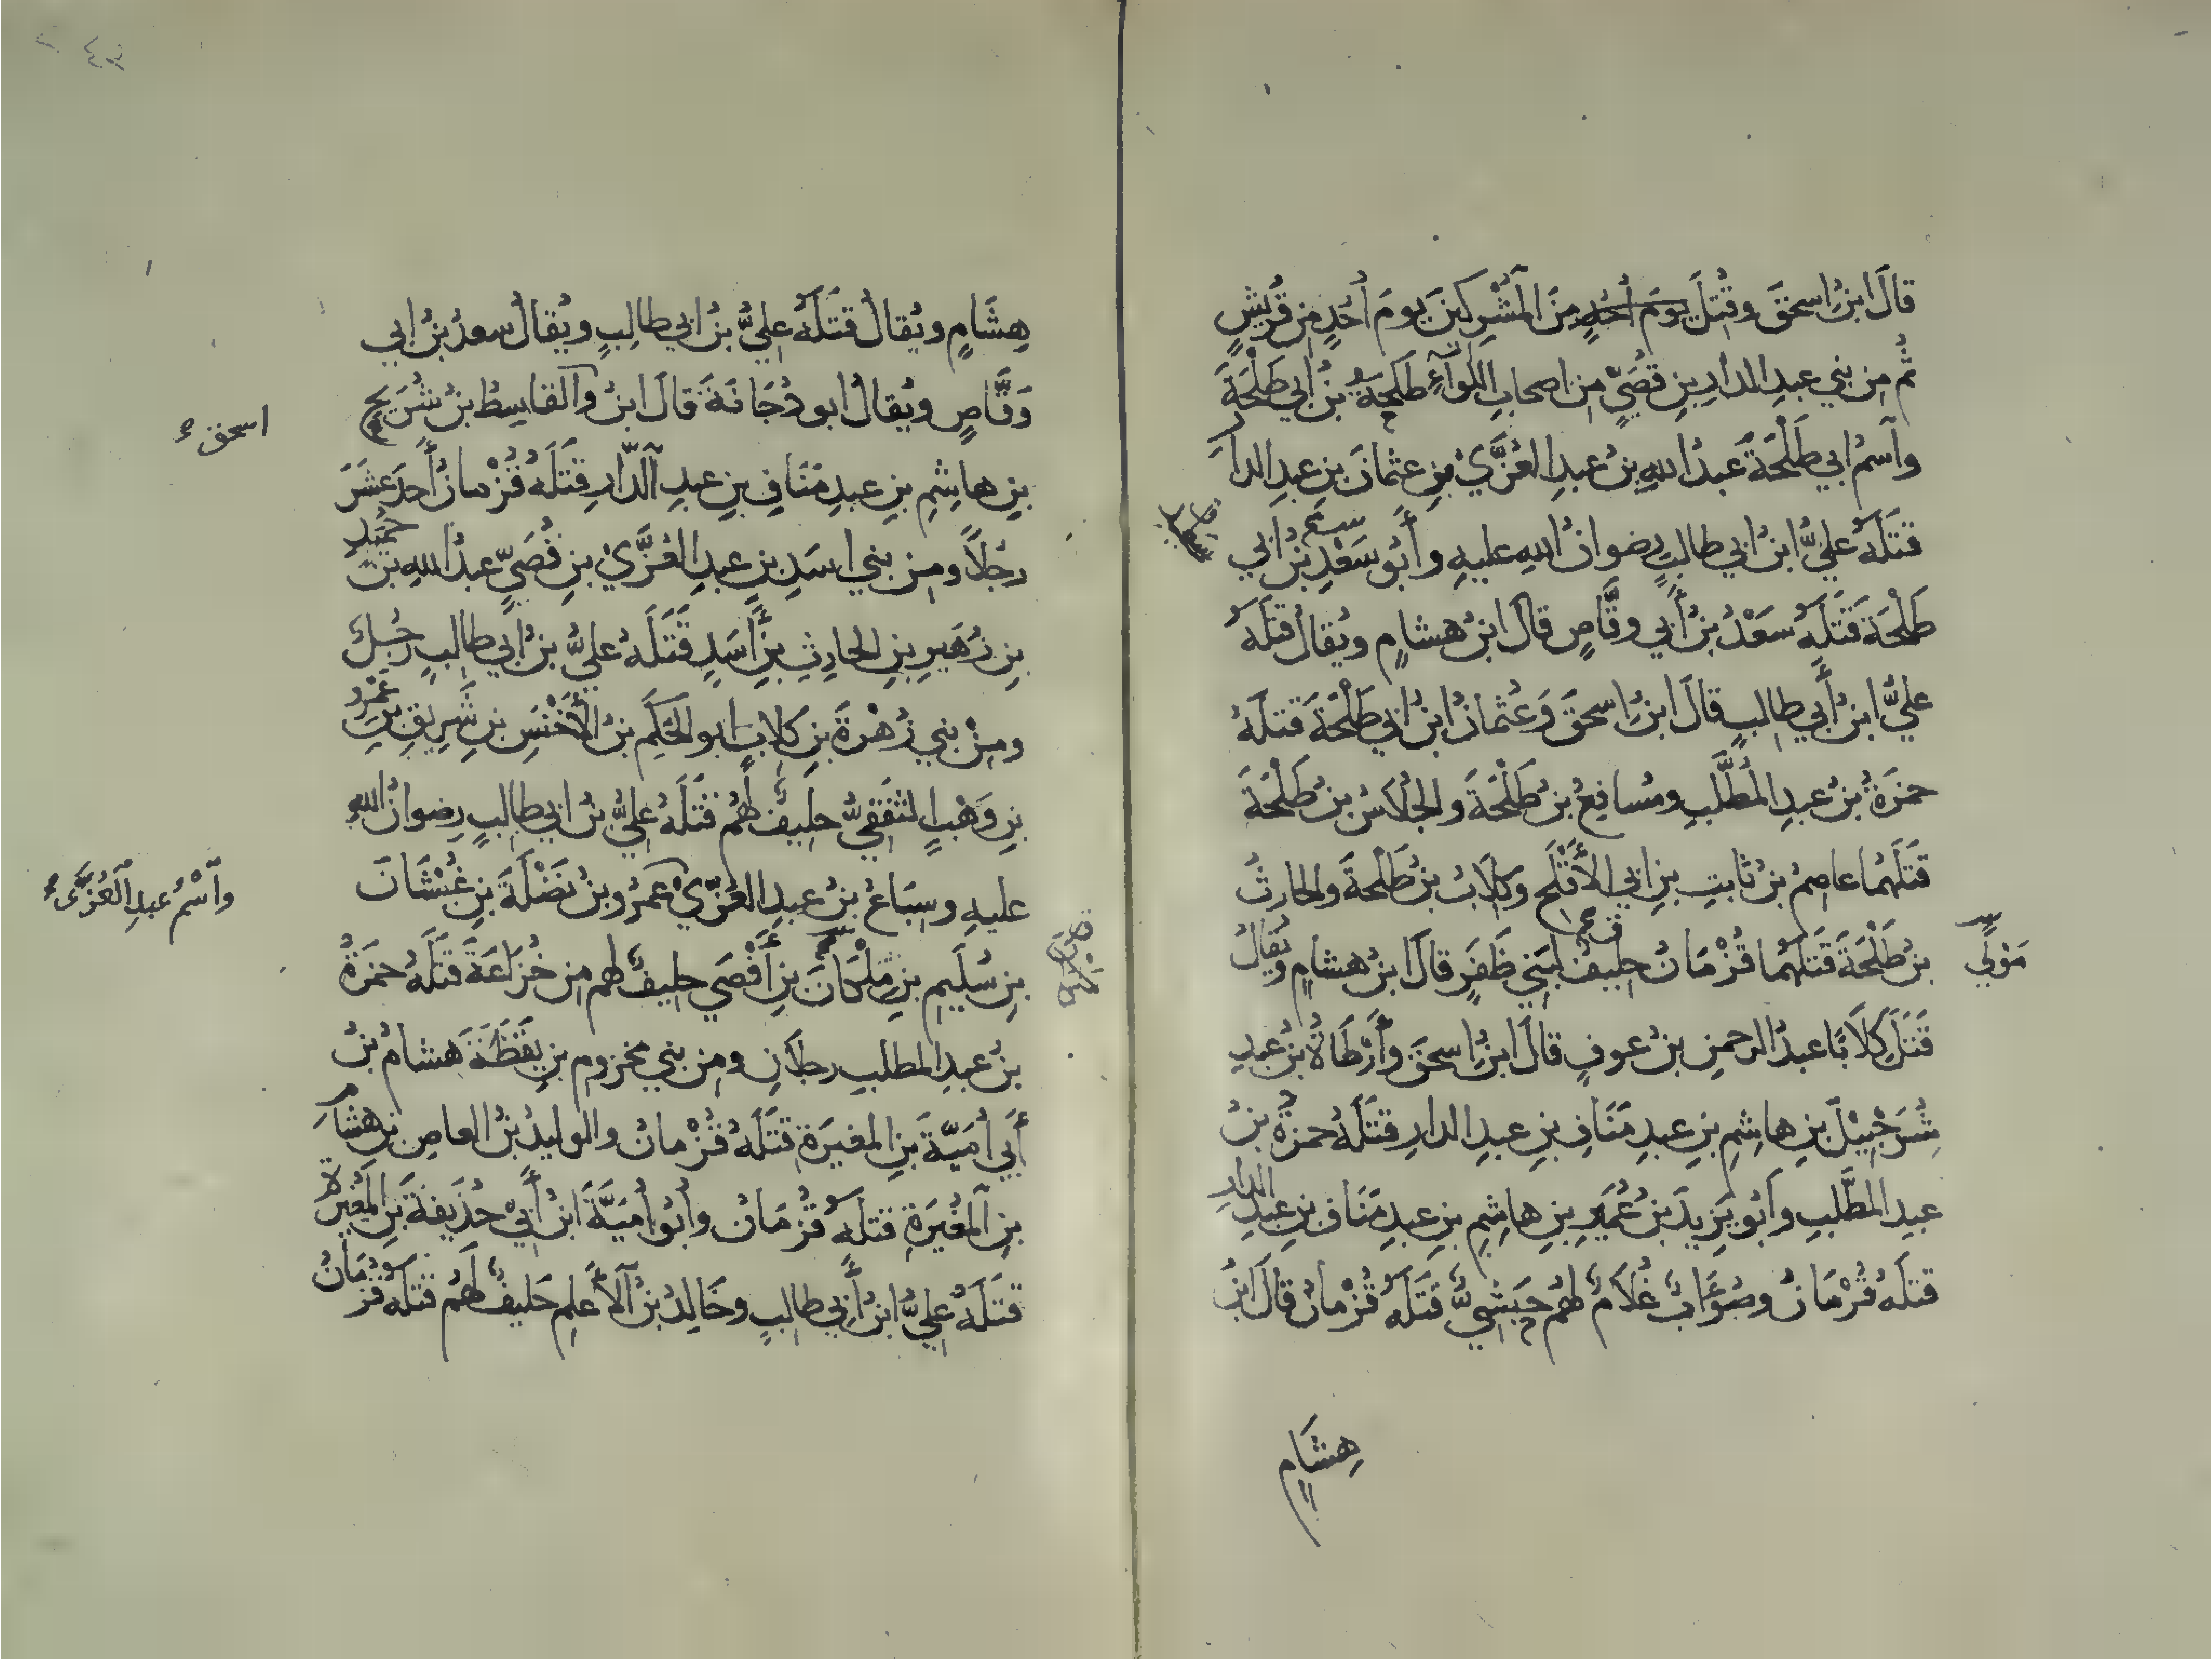 قالَ ابنُ اسحقَ وقُتِلَ يومَ أُحُدٍ مِنَ المُشْرِكينَ يومَ أُحُدٍ مِن قُرَيْشٍ
ثُم مِن بني عبدِ الدارِ بنِ قُصَيٍّ مِن اصحابِ اللواءِ طَلحَةُ بنُ ابي طَلْحَةَ
واسمُ ابي طَلْحَةَ عبدُ اللهِ بنُ عبدِ العُزَّيْ بنِ عثمانَ بنِ عبدِ الدار
قتَلَهُ عليُّ ابنُ ابي طالبٍ رضوانُ اللهِ عليهِ وأَبُو سَعْدِ بنُ ابي
طَلْحَةَ قَتَلَهُ سَعْدُ بنُ أَبي وقَّاصٍ قال ابنُ هشامٍ ويُقالُ قتلَهُ
عليُّ ابنُ أَبي طالبٍ قالَ ابنُ اسحقَ وَعُثمانُ ابنُ ابي طَلْحَةَ قتلَهُ
حمزَةُ بنُ عبدِ المُطَّلبِ ومُسافِعُ بنُ طَلْحَةَ والجُلَاسُ بنُ طَلْحَةَ
قَتَلَهُما عاصِمُ بنُ ثابتِ بنِ ابي الأَقْلَحِ وكِلَابُ بنُ طَلْحَةَ والحارثُ
مَوْلَي
بنُ طَلْحَةَ قَتَلَهُما قُزْمَانُ حليفٌ لبَني ظَفَرٍ قالَ ابنُ هشامٍ ويُقالُ
قَتَلَ كِلَابًا عبدُ الرحمنِ بنُ عوفٍ قالَ ابنُ اسحقَ وأَرْطَاةُ بنُ عبدِ
شُرَحْبِيْلَ بنِ هاشِمِ بنِ عبدِ مَنَافِ بنِ عبدِ الدارِ قتَلَهُ حمزةُ بنُ
عبدِ المطَّلبِ وأَبُو يَزِيدَ بنُ عُمَيرِ بنِ هاشِمِ بنِ عبدِ مَنَاف بنِ عبدِ الدارِ
قتلَهُ قُزْمَانُ وصُؤَابٌ غُلَامٌ لهُم حَبَشِيٌّ قتَلَهُ قُزْمانُ قالَ ابنُ
هِشَامٍ
هِشَامٍ ويُقالُ قَتَلَهُ عليُّ بنُ ابي طالِبٍ ويُقالُ سعدُ بنُ ابي
وَقَّاصٍ ويُقالُ ابو دُجَانَةَ قالَ ابنُ والقاسِطُ بنُ شُرَيحِ
اسحق
بنِ هاشِمِ بنِ عبدِ مَنَافِ بنِ عبدِ الدّارِ قَتَلَهُ قُزْمانُ أَحدَ عَشَرَ
رجُلاً ومِن بني اسَدِ بنِ عبدِ العُزَّيْ بنِ قُصَيٍّ عبدُ اللهِ بن حُمَيْدِ
بنِ زُهَيرِ بنِ الحارِثِ بنِ أَسَدٍ قَتَلَهُ عليُّ بنُ أبي طالبٍ رجُلٌ
ومِنْ بني زُهْرَةَ بنِ كلابٍ ابو الحَكَمِ بنُ الأَخْنَسِ بنِ شَرِيقِ بنِ عَمْرِو
بنِ وَهْبٍ الثَقَفِيُّ حليفٌ لهُم قَتَلَهُ عليُّ بنُ ابي طالبٍ رضوانُ اللهِ
عليهِ وسِبَاعُ بنُ عبدِ العُزّيْ عَمرُو بنُ نَضْلَةَ بنِ غُبْشَانَ
واسْمُ عبدِ العُزَّى
بنِ سُلَيمِ بنِ مَلْكَانَ بنِ أَفْصَي حليفٌ لهم مِن خُزَاعَةَ قَتَلَهُ حمزَةُ
بنُ عبدِ المطلبِ رجلانِ ومِن بني مخزومِ بنِ يَقَظَةَ هشامُ بنُ
أَبي أُمَيّةَ بنِ المغيرَةِ قَتَلَهُ قُزْمانُ والوليدُ بنُ العاصِ بنِ هشام
بنِ المُغِيَرةِ قتلَهُ قُزْمَانُ وأَبُو أُمَيَّةَ ابنُ أَبيْ حُذَيفةَ بنِ المُغيرةِ
قتَلَهُ عليُّ ابنُ أَبي طالبٍ وخَالِدُ بنُ الأَعلَمِ حَليفٌ لَهُم قتلَهُ قُزْمَانُ